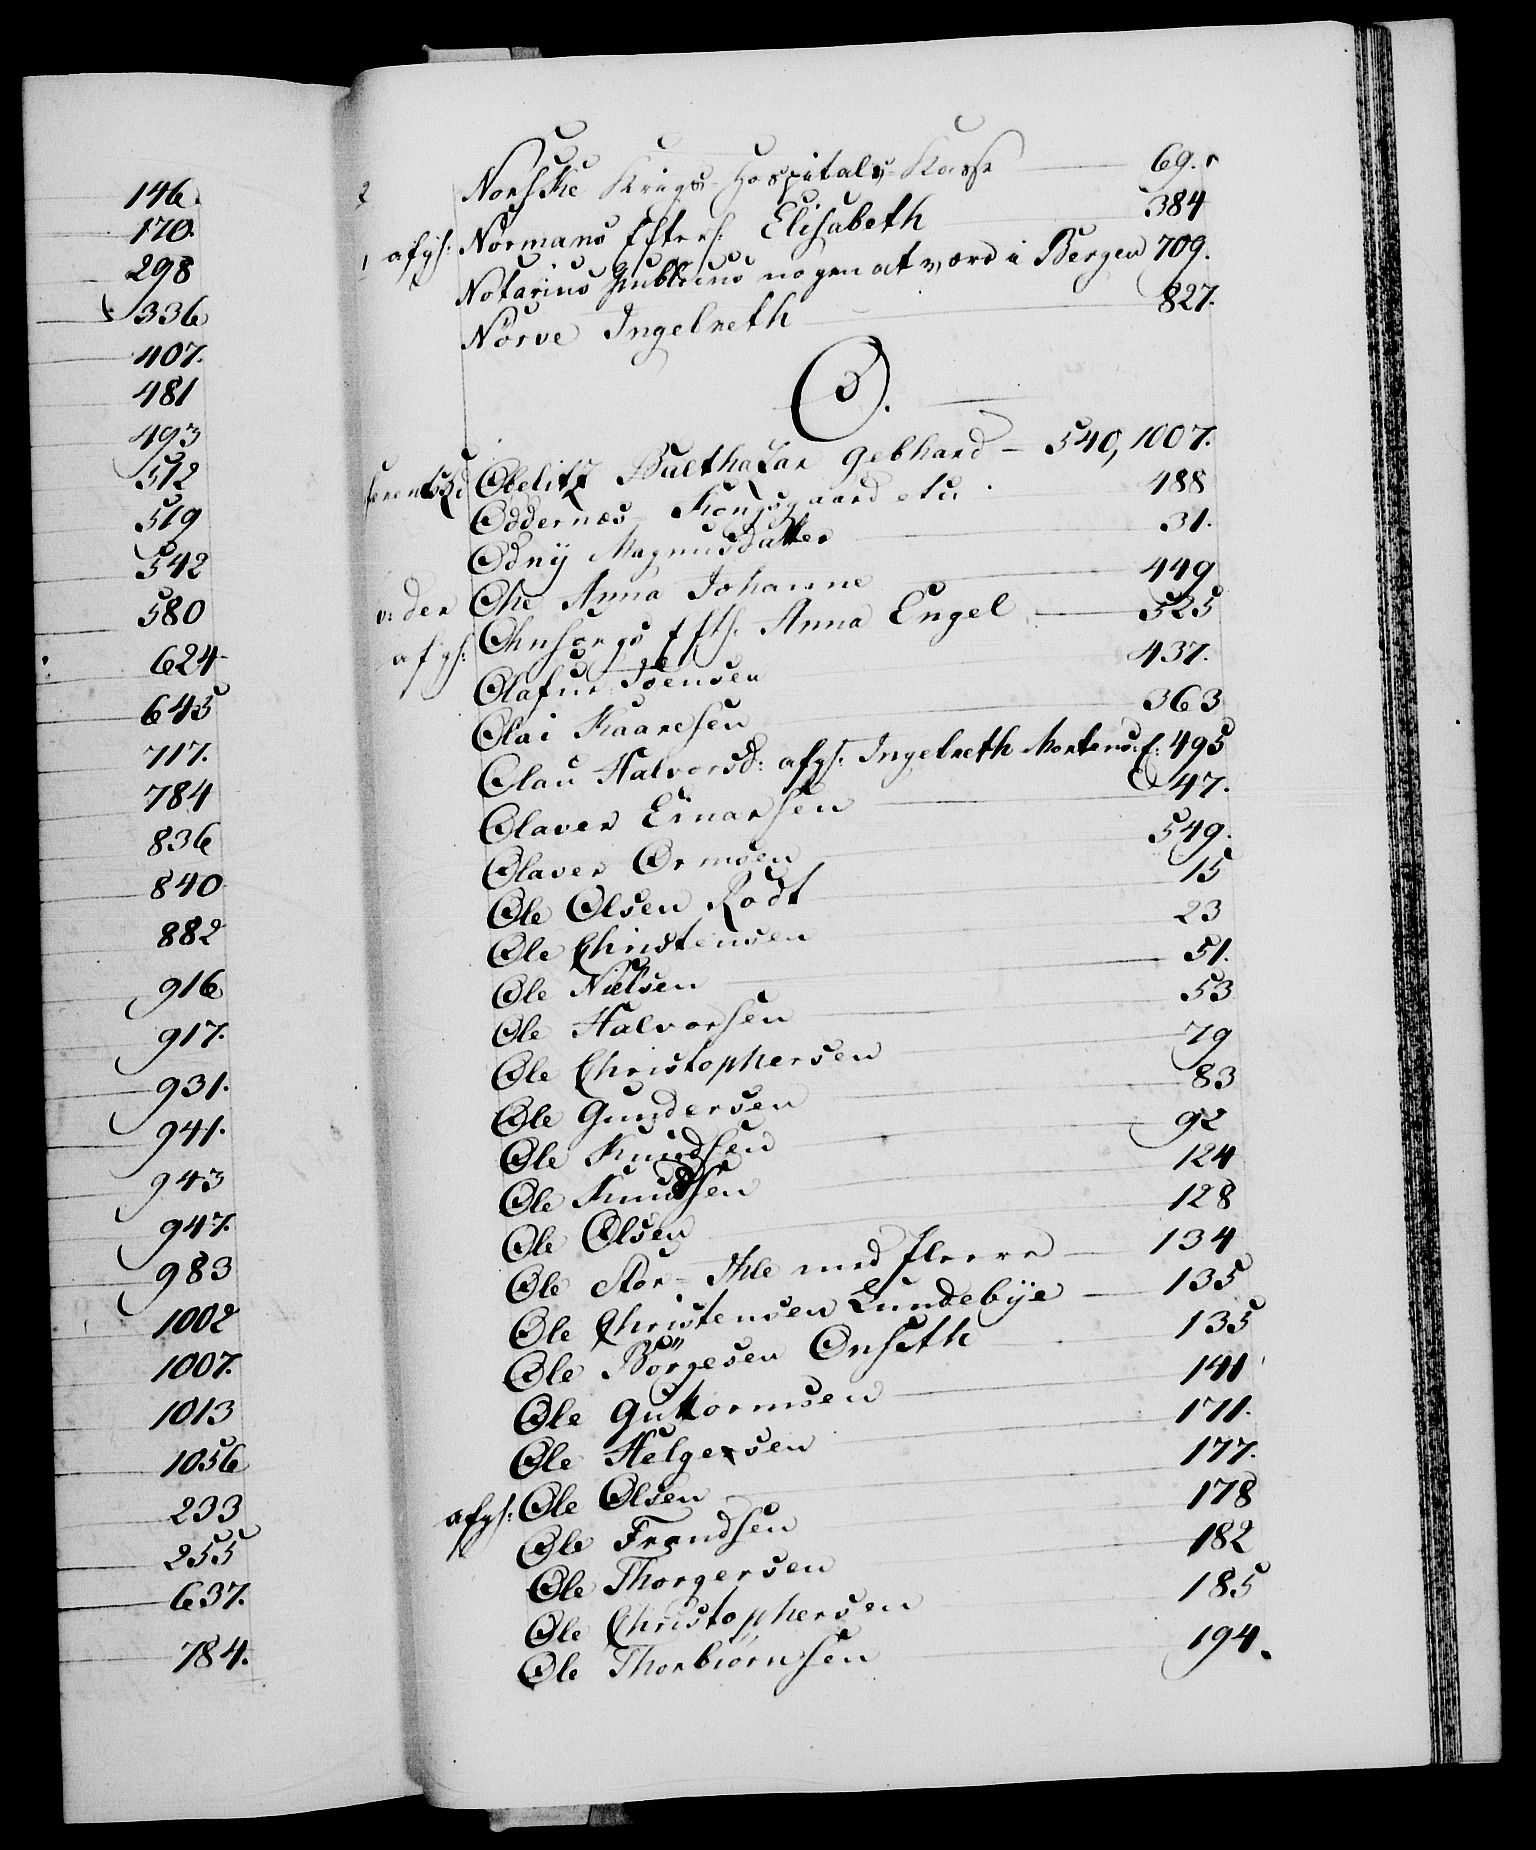 146.
170.
298
336
407.
481
493
512
519
542
580
624
645
717.
784
836
840
882
916
917.
931.
941.
943
947.
983
1002
1007.
1013
1056
233
255
637.
784.
Norske Krigs-Hospitals-Kasse 69.
afgs: Normans Efters. Elisabeth 384
Notarius Publicus nogen at være i Bergen 709.
Nørve Ingelreth 827.
O.
Obelitz Balthazar Gebhard - 540, 1007.
Oddernæs - Kongsgaard etc. 488
Odnij Magnusdatter 31.
Ohe Anna Johanne 449
afgs: Ohnsorgs Efts. Anna Engel 525
Olafur Joensen 437.
Olai Kaaresen 363
Olau Halvorsd: afgs. Ingelreth Mortens. E: 495
Olaver Einarsen 47.
Olaver Ormsen 549.
Ole Olsen Rodt 15
Ole Christensen 23
Ole Nielsen 51.
Ole Halvorsen 53
Ole Christophersen 79
Ole Gundersen 83
Ole Knudsen 92
Ole Knudsen 124
Ole Olsen 128
Ole Stor-Ihle med fleere 134
Ole Christensen Lundebye 135
Ole Börgesen Onseth 135
Ole Guttormsen 141
Ole Helgesen 171.
afgs: Ole Olsen 177.
Ole Frandsen 178
Ole Thorgersen 182
Ole Christophersen 185
Ole Thorbiörnsen 194.